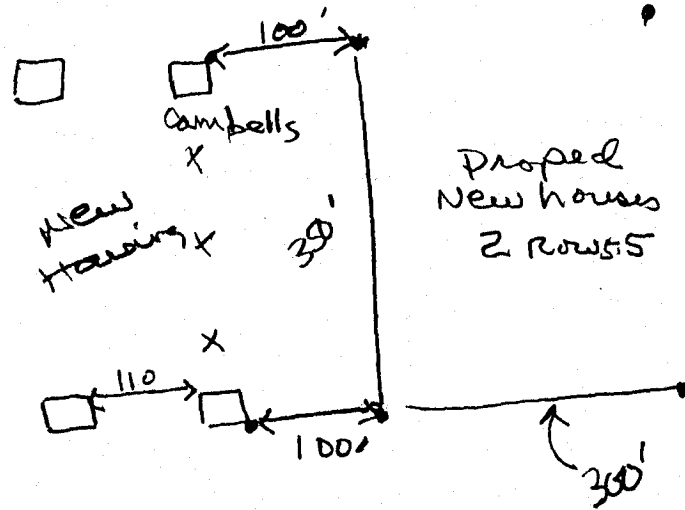 100'
Cambells
X
New
Housing X
Proped
New houses
2 Rows:5
X
110
100'
300'